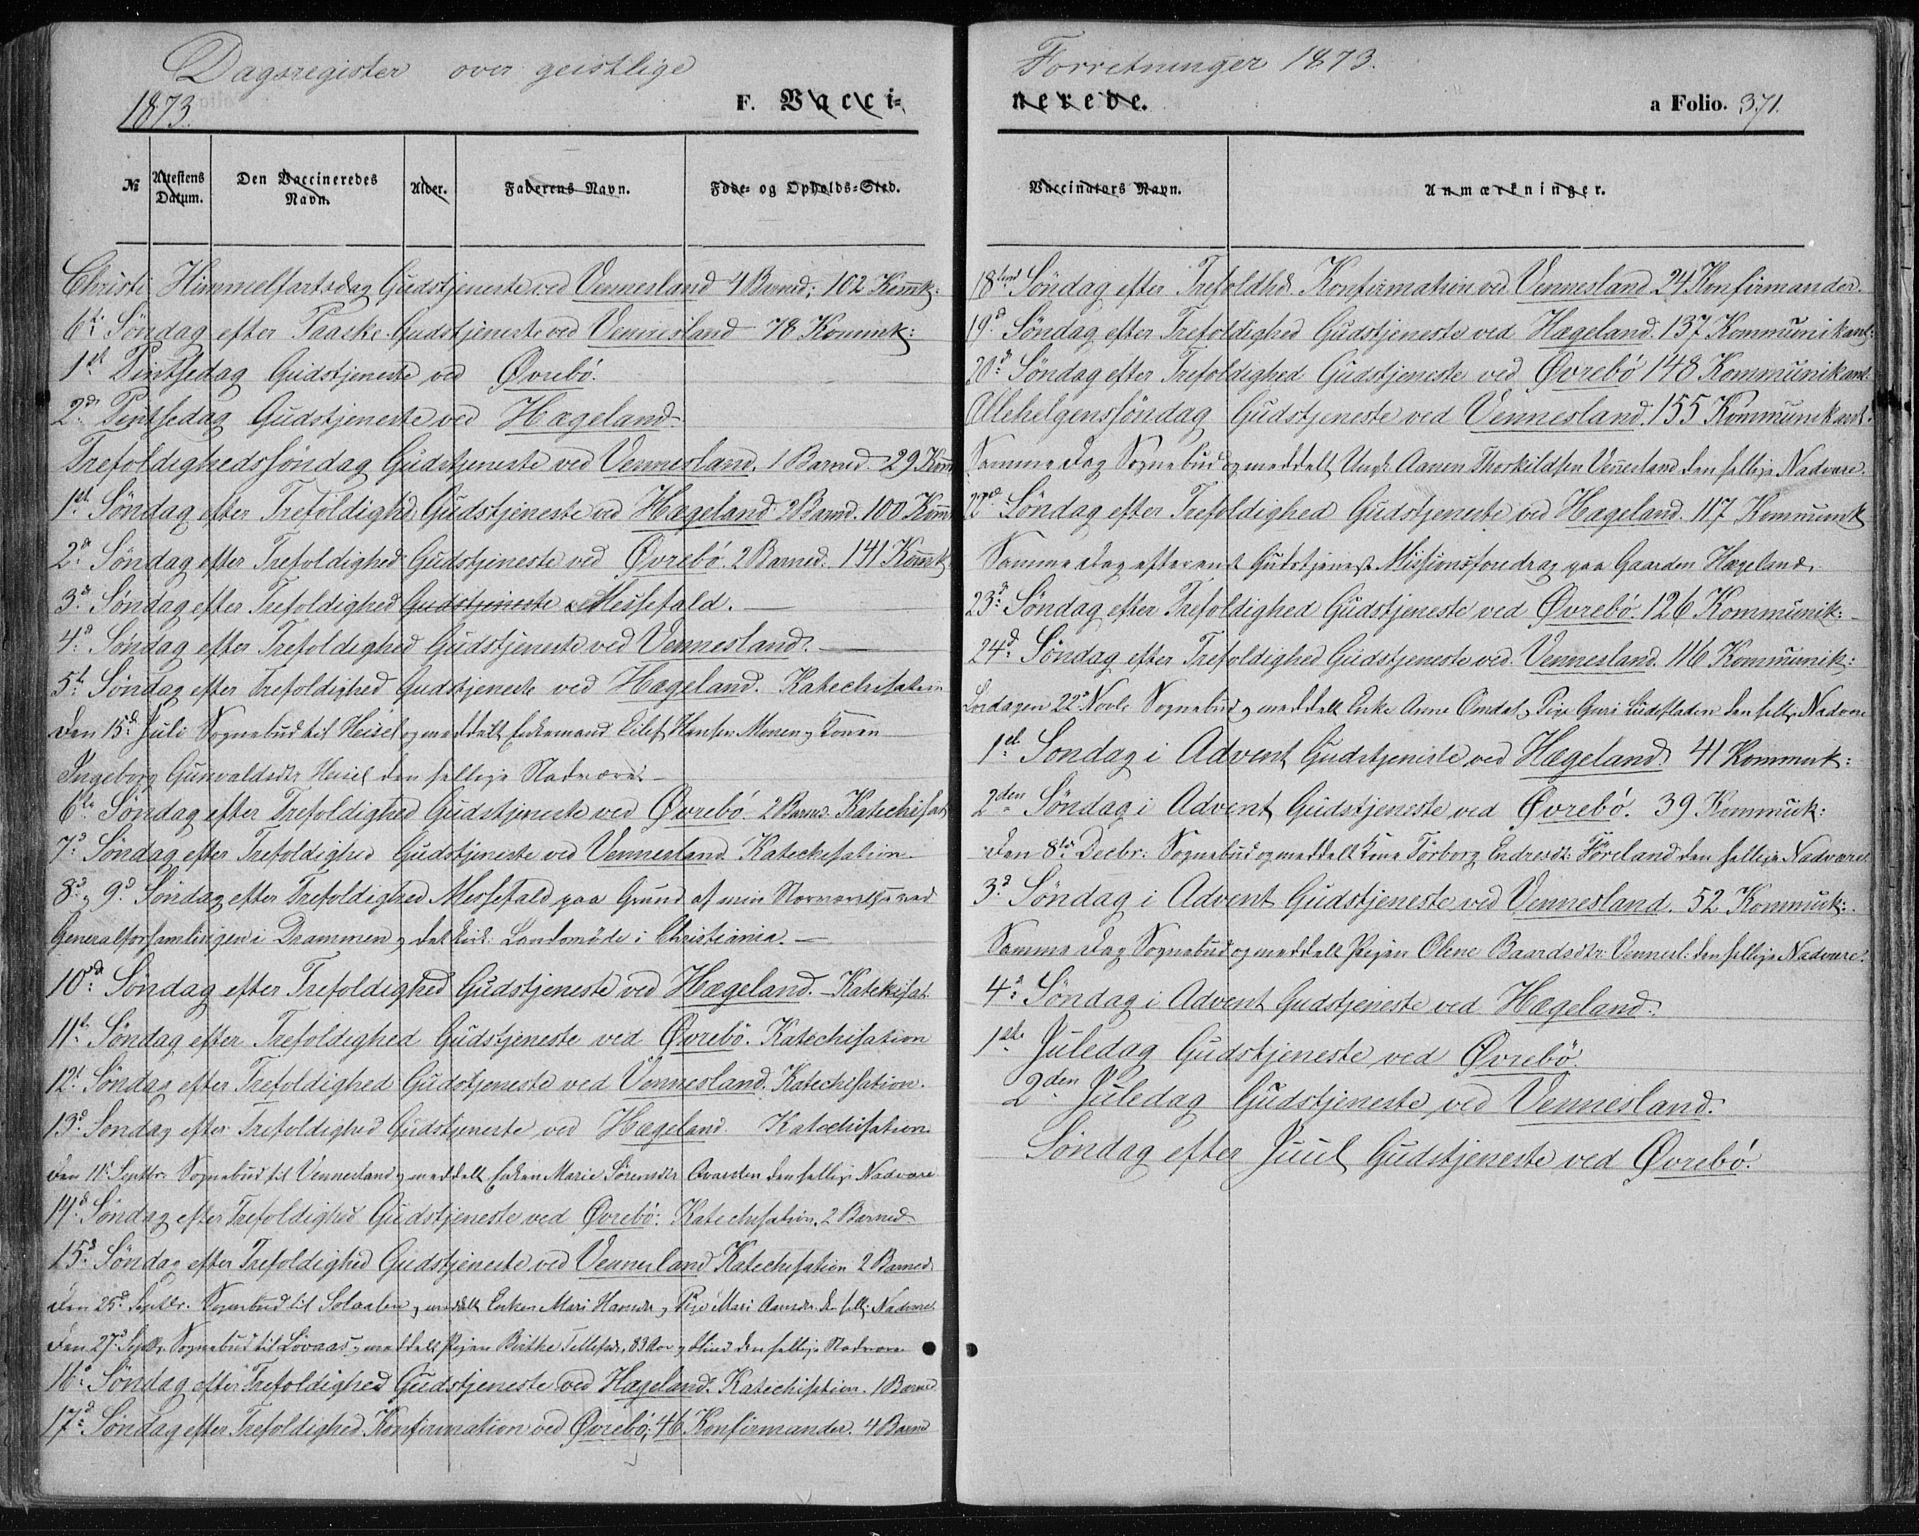 Dagsregister over geistlige
1873.
F. Vacci=
№
Attestens Datum.
Den Vaccineredes Navn.
Alder.
Faderens Navn.
Føde= og Opholds=Sted.
Christi Himmelfartsdag Gudstjeneste ved Vennesland 4 Barned; 102 Komk:
6t: Søndag efter Paaske. Gudstjeneste ved Vennesland 78 Kommk:
1st Pintsedag Gudstjeneste ved Øvrebö.
2d: Pintsedag Gudstjeneste ved Hægeland
Trefoldighedssøndag Gudstjeneste ved Vennesland. 1 Barned. 29 Kom
1st Søndag efter Trefoldighed Gudstjeneste ved Hægeland 2 Barned. 100 Komk
2d: Søndag efter Trefoldighed Gudstjeneste ved Øvrebö. 2 Barned. 141 Komk
3d: Søndag efter Trefoldighed Gudstjeneste Messefald.
4d: Søndag efter Trefoldighed Gudstjeneste ved Vennesland.
5t: Søndag efter Trefoldighed Gudstjeneste ved Hægeland. Katechisation
Den 15d: Juli Sognebud til Heisel og meddelt Enkemand Eilef Hansen Monen og Konen
Ingeborg Gunvaldsdtr Heisel den hellige Nadvere
6te Søndag efter Trefoldighed Gudstjeneste ved Øvrebö. 2 Barned. Katechisat
7d: Søndag efter Trefoldighed Gudstjeneste ved Vennesland Katechisation.
8d: og 9d. Søndag efter Trefoldighed Messefald paa Grund af min Nærværelse ved
Generalforsamlingen i Drammen og det Landsmöde i Christiania.
10d: Søndag efter Trefoldighed Gudstjeneste ved Hægeland. Katekisat.
11t: Søndag efter Trefoldighed Gudstjeneste ved Øvrebö. Katechisation
12t Søndag efter Trefoldighed Gudstjeneste ved Vennesland. Katechisation.
13d: Søndag efter Trefoldighed Gudstjeneste ved Hægeland. Katechisation
Den 11t Septbr. Sognebud til Vennesland og meddelt Enken Marie Sørensdtr den hellige Nadvere.
14d: Søndag efter Trefoldighed Gudstjeneste ved Øvrebö: Katechisation. 2 Barned
15d: Søndag efter Trefoldighed Gudstjeneste ved Vennesland Katechisation 2 Barned
Den 25d. Septbr. Sognebud til og meddelt Enken Mari Hansdr og Pige Mari den hell: Nadvere
Den 27d Septbr. Sognebud til Lövaas og meddelt Pigen Birthe Tellefsd. 83 Aar og blind den hellige Nadvere
16d: Søndag efter Trefoldighed Gudstjeneste ved Hægeland. Katechisation. 1 Barned
17d: Søndag efter Trefoldighed Konfirmation ved Øvrebö; 46 Konfirmander. 4 Barned
Forretninger 1873.
nerede.
a Folio. 371.
Vaccinators Navn.
Anmærkninger.
18tend Søndag efter Trefoldhd. Konfirmation ved Vennesland 24 Konfirmander.
19d: Søndag efter Trefoldighed Gudstjeneste ved Hægeland. 137 Kommunikant:
20d: Søndag efter Trefoldighed Gudstjeneste ved Øvrebö 148 Kommunikant.
Allehelgenssöndag Gudstjeneste ved Vennesland. 155 Kommunikant.
Samme Dag Sognebud og meddelt Ungk. Aanen Thorkildsen Vennesland den hellige Nadvere.
22d: Søndag efter Trefoldighed Gudstjeneste ved Hægeland. 117 Kommunk
Samme Dag efter endt Gudstjeneste Missionsforedrag paa Gaarden Hægeland.
23d: Søndag efter Trefoldighed Gudstjeneste ved Øvrebö. 126 Kommunik:
24d: Søndag efter Trefoldighed Gudstjeneste ved Vennesland. 116 Kommunik:
Lørdagen 22d Novbr Sognebud og meddelt Enke Anne Omdal og Pige Guri den hellige Nadvere
1st: Søndag i Advent Gudstjeneste ved Hægeland 41 Kommunk:
2den Søndag i Advent Gudstjeneste ved Øvrebö. 39 Kommuk:
Den 8de Decbr: Sognebud og meddelt Kone Torborg Endresdt: Föreland den hellige Nadvere
3d: Søndag i Advent Gudstjeneste ved Vennesland. 52 Kommuk:
Samme Dag Sognebud og meddelt Pigen Olene Baardsdtr: Vennesl: den hellige Nadvere.
4d: Søndag i Advent Gudstjeneste ved Hægeland.
1ste Juledag Gudstjeneste ved Øvrebö
2den Juledag Gudstjeneste ved Vennesland.
Søndag efter Juul Gudstjeneste ved Øvrebö.